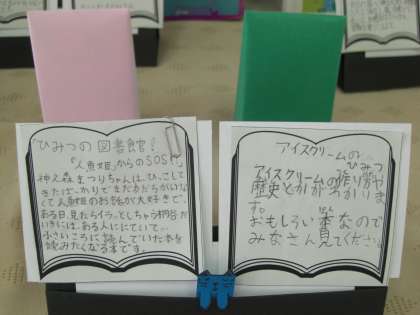 ひみつの図書館！
『人魚姫』からのSOS
神代森まつりちゃんは、ひっこして
きたばかりでまだ友だちがいな
くて人魚姫のお話が大好きで、
ある日、見たらイラっとしちゃう
には、ある人ににていて、
小さいころに読んでいた本を
読みたくなる本です。
アイスクリームの
ひみつ
アイスクリームの作り方や
歴史とかがわかりま
す。
おもしろい本なので
みなさん見てください。